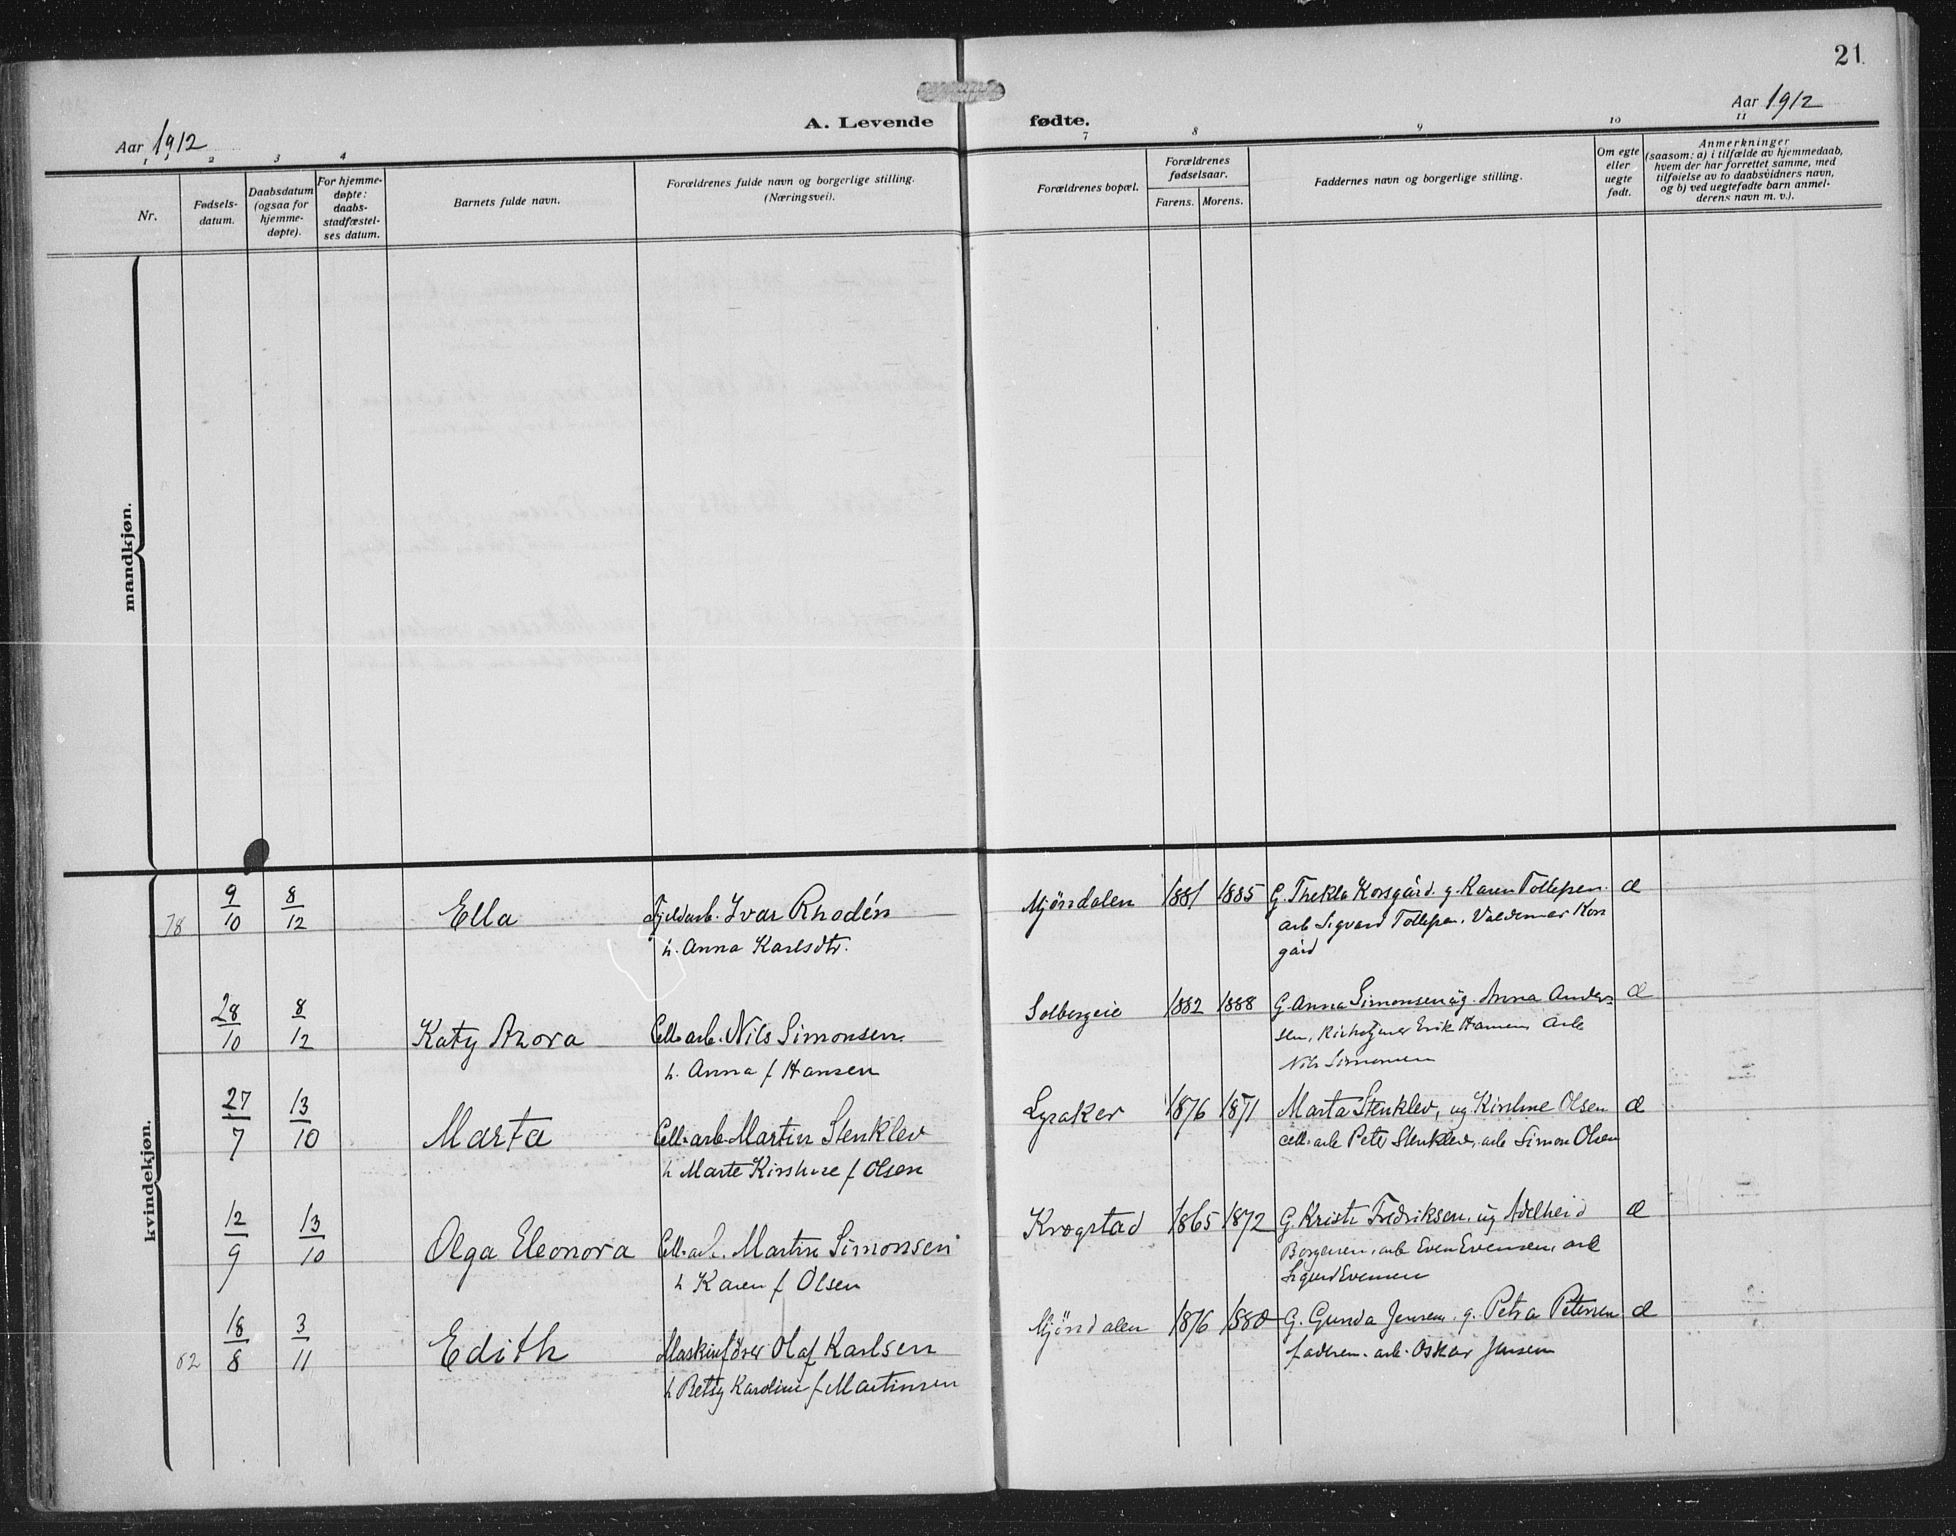 21.
Aar 1912
A. Levende fødte.
Aar 1912
1 2 3 4 7 8 9 10 11
Nr.
Fødsels-
datum.
Daabsdatum
(ogsaa for
hjemme-
døpte).
For hjemme-
døpte:
daabs-
stadfæstel-
ses datum.
Barnets fulde navn.
Forældrenes fulde navn og borgerlige stilling.
(Næringsvei).
Forældrenes bopæl.
Forældrenes
fødselsaar.
Farens. Morens.
Faddernes navn og borgerlige stilling.
Om egte
eller
uegte
født.
Anmerkninger
(saasom: a) i tilfælde av hjemmedaab,
hvem der har forrettet samme, med
tilføielse av to daabsvidners navn,
og b) ved uegtefødte barn anmel-
derens navn m. v.).
mandkjøn.
kvindekjøn.
78 9/10 8/12 Ella Fjeldarb. Ivar Rhodén Mjöndalen 1881 1885 G. Thekla Korsgård. g. Karen Tollefsen. æ
h. Anna Karlsdtr. arb Sigvard Tollefsen. Valdemar Kors
gård
28/10 8/12 Katy Azora Cell. arb. Nils Simonsen Solbergeie 1882 1888 G. Anna Simonsen og g. Anna Ander- æ
sen, Erik Hansen arb
h. Anna f Hansen Nils Simonsen
27/7 13/10 Marta Cell. arb Martin Stenklev Lyaker 1876 1871 Marta Stenklev, og Kirstine Olsen æ
h Marte Kirstine f Olsen cell. arb Peter Stenklev, arb Simon Olsen
12/9 13/10 Olga Eleonora Cell. arb. Martin Simonsen Krogstad 1865 1872 G. Kristi Fredriksen. og Adelheid æ
Borgersen. arb Even Evensen, arb
h Karen f Olsen Sigurd Evensen
82 18/8 3/11 Edith Maskinfører Olaf Karlsen Mjöndalen 1876 1880 G. Gunda Jensen. g. Petra Petersen æ
h Betsy Karoline f Martinsen faderen. arb. Oskar Jensen